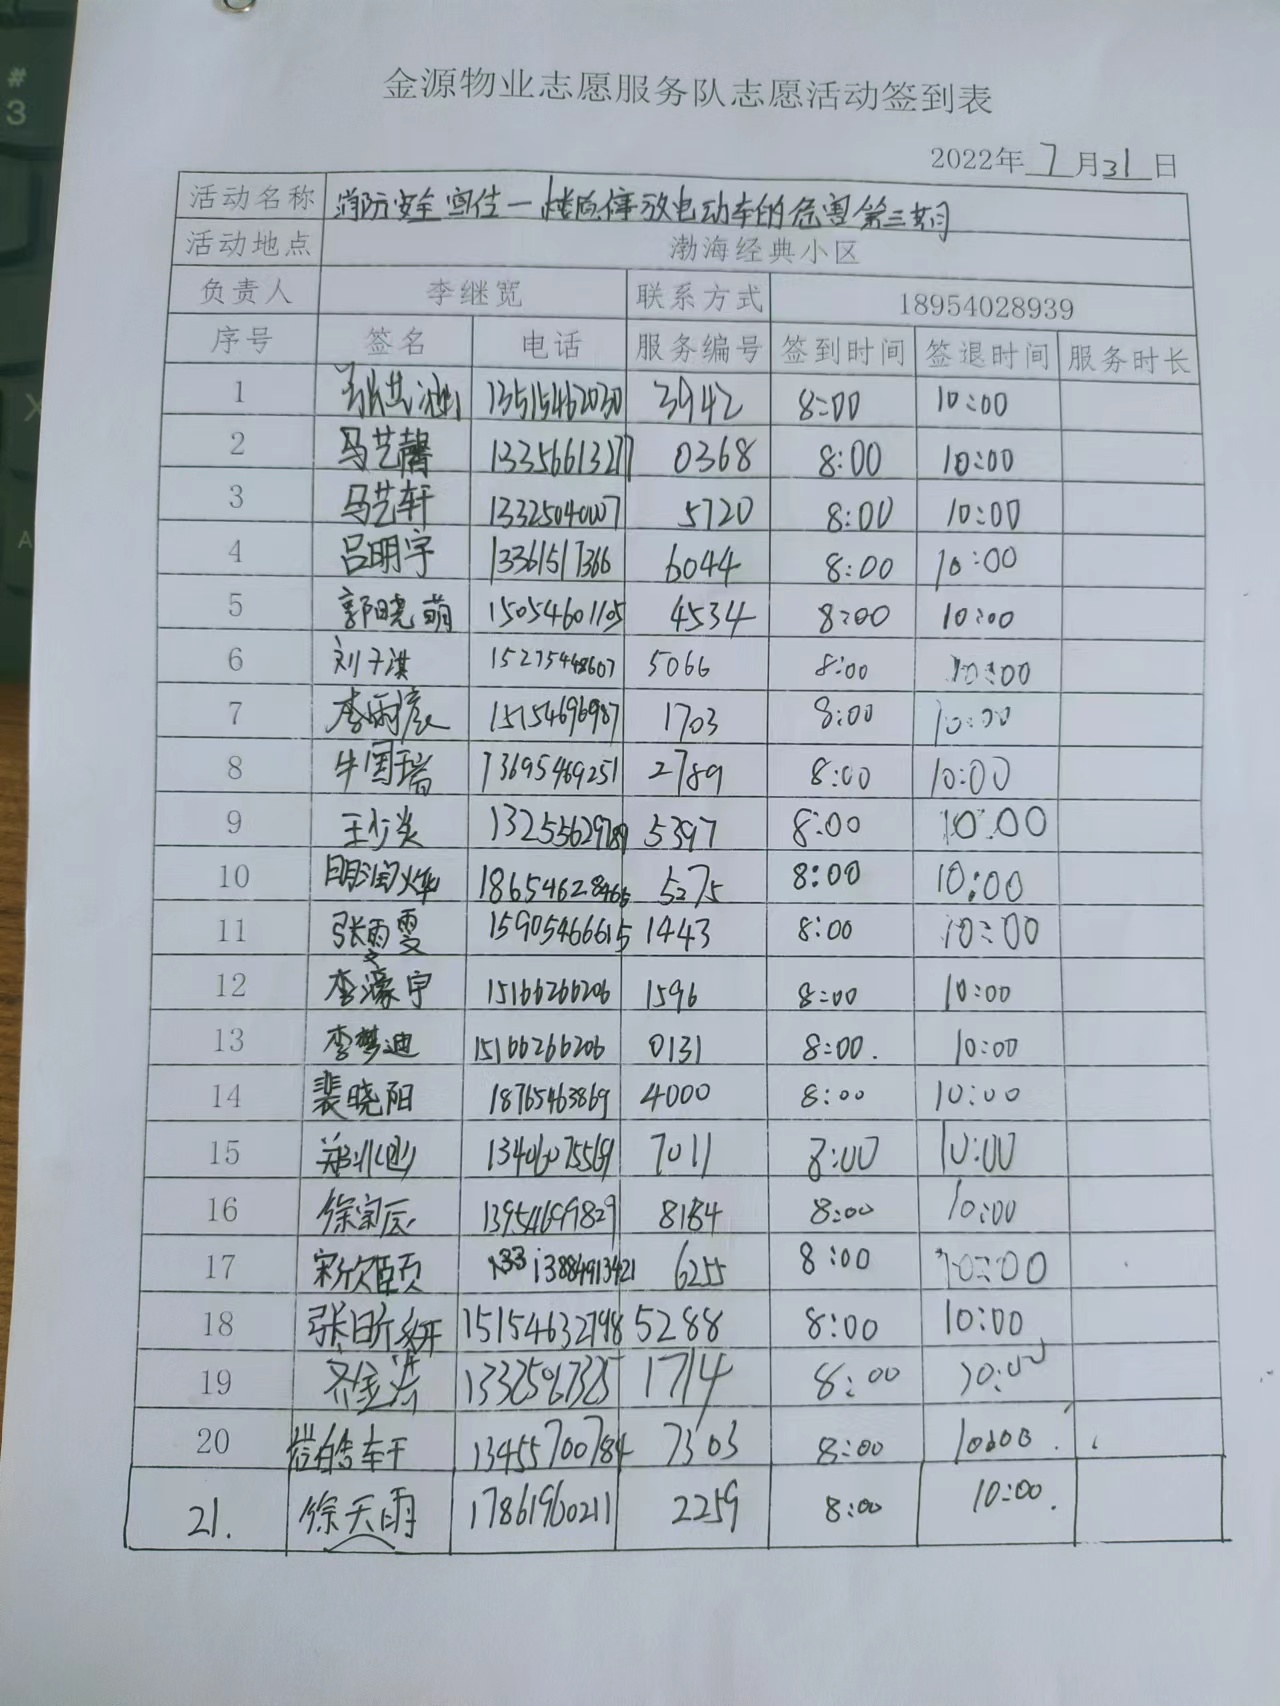 #
3
X
A
金源物业志愿服务队志愿活动签到表
2022年7月31日
活动名称 消防安全宣传一楼后停放电动车的危害第三期
活动地点 渤海经典小区
负责人 李继宽 联系方式 18954028939
序号 签名 电话 服务编号 签到时间 签退时间 服务时长
1 张艺涵 13515462030 3942 8:00 10:00
2 马艺馨 13356613277 0368 8:00 10:00
3 马艺轩 13325040007 5720 8:00 10:00
4 吕明宇 13361517366 6044 8:00 10:00
5 郭晓萌 15054601105 4534 8:00 10:00
6 刘子淇 15275448607 5066 8:00 10:00
7 李雨宸 15154696987 1703 8:00 10:00
8 牛国瑞 13695469251 2789 8:00 10:00
9 王少炎 13255629789 5397 8:00 10:00
10 明润烨 18654628466 5275 8:00 10:00
11 张雨雯 15905466615 1443 8:00 10:00
12 李濠宇 15166266206 1596 8:00 10:00
13 李梦迪 15166266206 0131 8:00. 10:00
14 裴晓阳 18765463869 4000 8:00 10:00
15 郑兆 13406075569 7011 8:00 10:00
16 徐家辰 13954699829 8184 8:00 10:00
17 宋欣 13884913421 6255 8:00 10:00
18 张昕妍 15154632798 5288 8:00 10:00
19 齐金浩 13325067325 1714 8:00 10:00
20 皓轩 13455700784 7303 8:00 10:00.
21. 徐天雨 17861960211 2259 8:00 10:00.